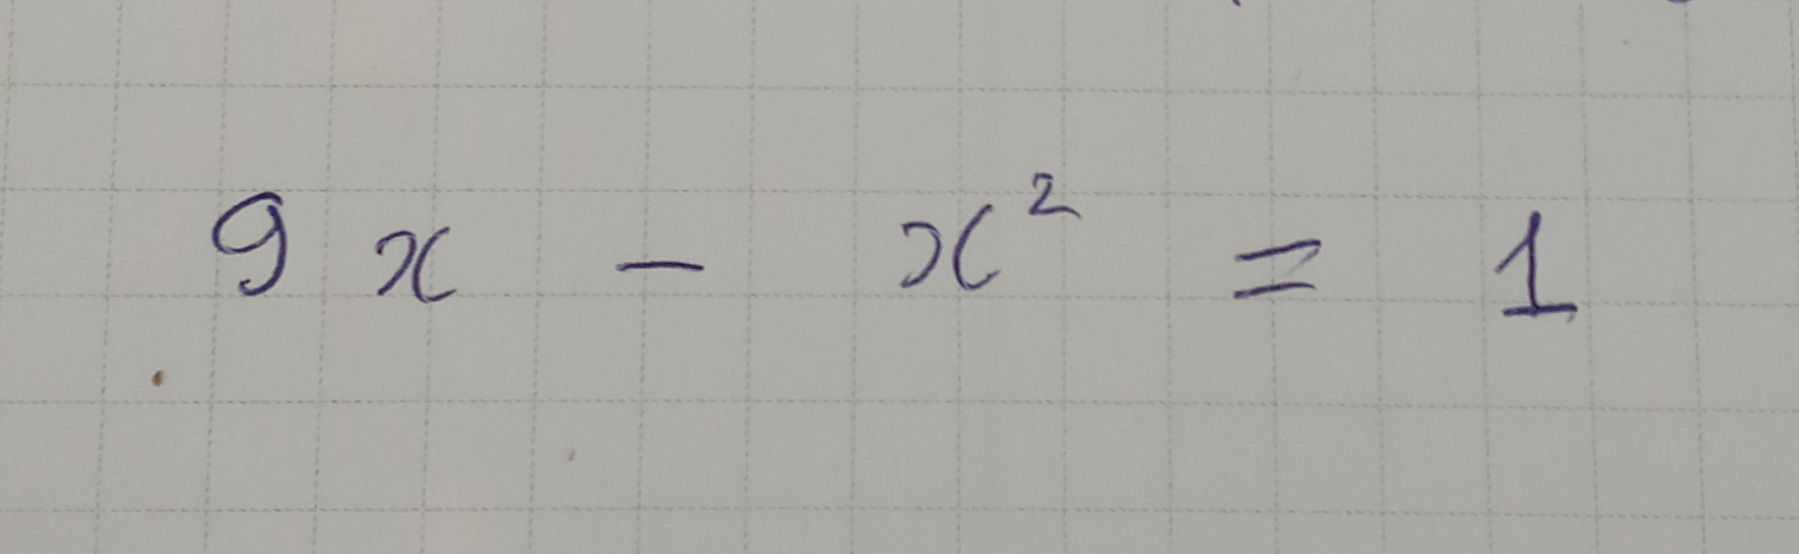 9x - x² = 1